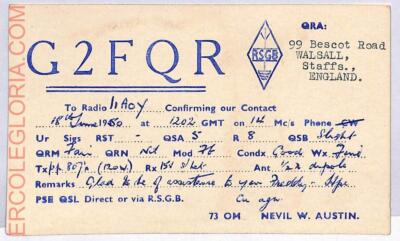 ERCOLEGLORIA.COM
G2FQR
RSGB
QRA:
99 Bescot Road
WALSALL,
Staffs.,
ENGLAND.
To Radio I1AOY Confirming our Contact
18th June 1950 at 1202 GMT on 14 Mc/s Phone CW
Ur Sigs RST - QSA 5 R 8 QSB Slight
QRM Fair QRN Nil Mod FB Condx Good Wx Fine
Tx pp 807's Rx 154 s/het Ant ½λ dipole
Remarks Glad to be of assistance to you Freddy - Hpe
PSE QSL Direct or via R.S.G.B. Cu agn
73 OM NEVIL W. AUSTIN.